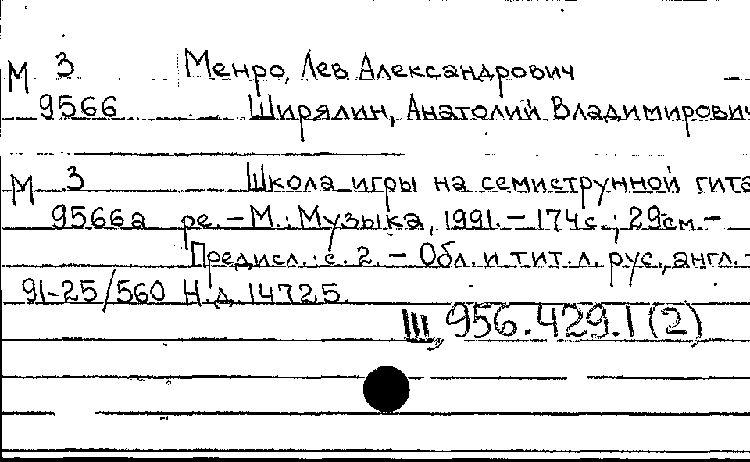 М 3 Менро, Лев Александрович
9566 Ширялин, Анатолий Владимирович
М 3 Школа игры на семиструнной гита
9566а ре. – М.: Музыка, 1991. – 174 с.; 29 см. –
Предисл.: с. 2. – Обл. и тит. л. рус., англ. –
91-25/560 Н.д. 14725.
III, 956.429.1 (2)